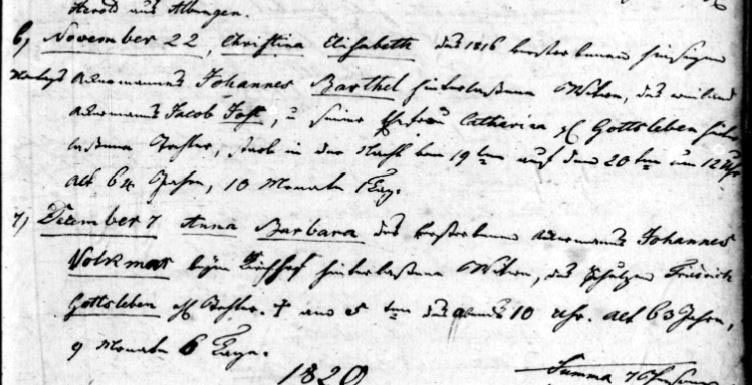 Herold aus Albungen.
6) November 22, Christina Elisabeth des 1816 verstorbenen hiesigen
Ackermanns Johannes Barthel hinterlaßene Witwe, des weiland
Ackermanns Jacob Jost, u seiner Ehefrau Catharina Gottsleben hinter
laßene Tochter, starb in der Nacht vom 19ten auf den 20ten um 12 Uhr
alt 64 Jahr, 10 Monate 1 Tag.
7) December 7 Anna Barbara des verstorbenen Ackermanns Johannes
Volkmar beym Kirchhof hinterlaßene Witwe, des Friedrich
Gottsleben Tochter. † am 5ten des abends 10 Uhr. alt 63 Jahr,
9 Monate 6 Tage.
1820
Summa 7